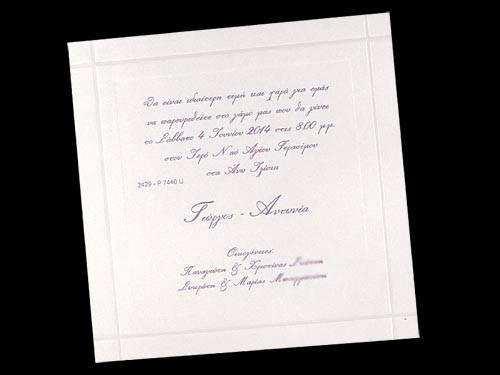 Θα είναι ιδιαίτερη τιμή και χαρά για εμάς
να παρευρεθείτε στο γάμο μας που θα γίνει
το Σάββατο 4 Ιουνίου 2014 στις 8.00 μ.μ.
στον Ιερό Ναό Αγίου Γερασίμου
στα Άνω Ιλίσια
2429 - P 7440 U
Γιώργος - Αντωνία
Οικογένειες:
Παναγιώτη & Χριστίνας
Σπυρίδη & Μαρίας